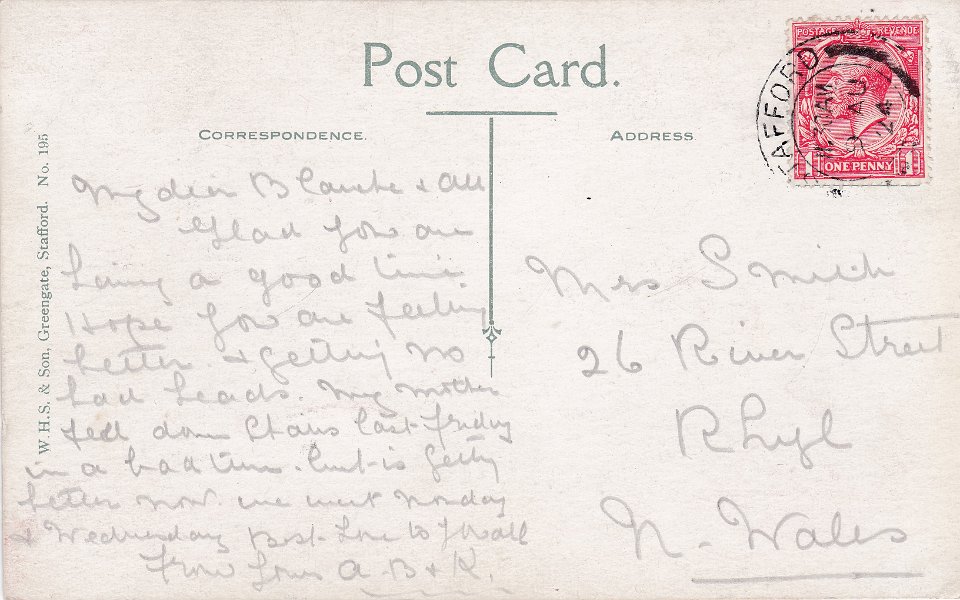 Post Card.
CORRESPONDENCE.
ADDRESS.
W.H.S. & Son, Greengate, Stafford. No. 195
POSTAGE REVENUE
ONE PENNY
1 1
AFFORD
AU
24
My dear Blanche & all
Glad you are
having a good time
Hope you are feeling
better & getting no
bad heads. My mother
fell down stairs last Friday
in a bad turn. but is getting
better now. we went Monday
& Wednesday Best Love to
From yours A. B & K.
Mrs Smith
26 River Street
Rhyl
N. Wales